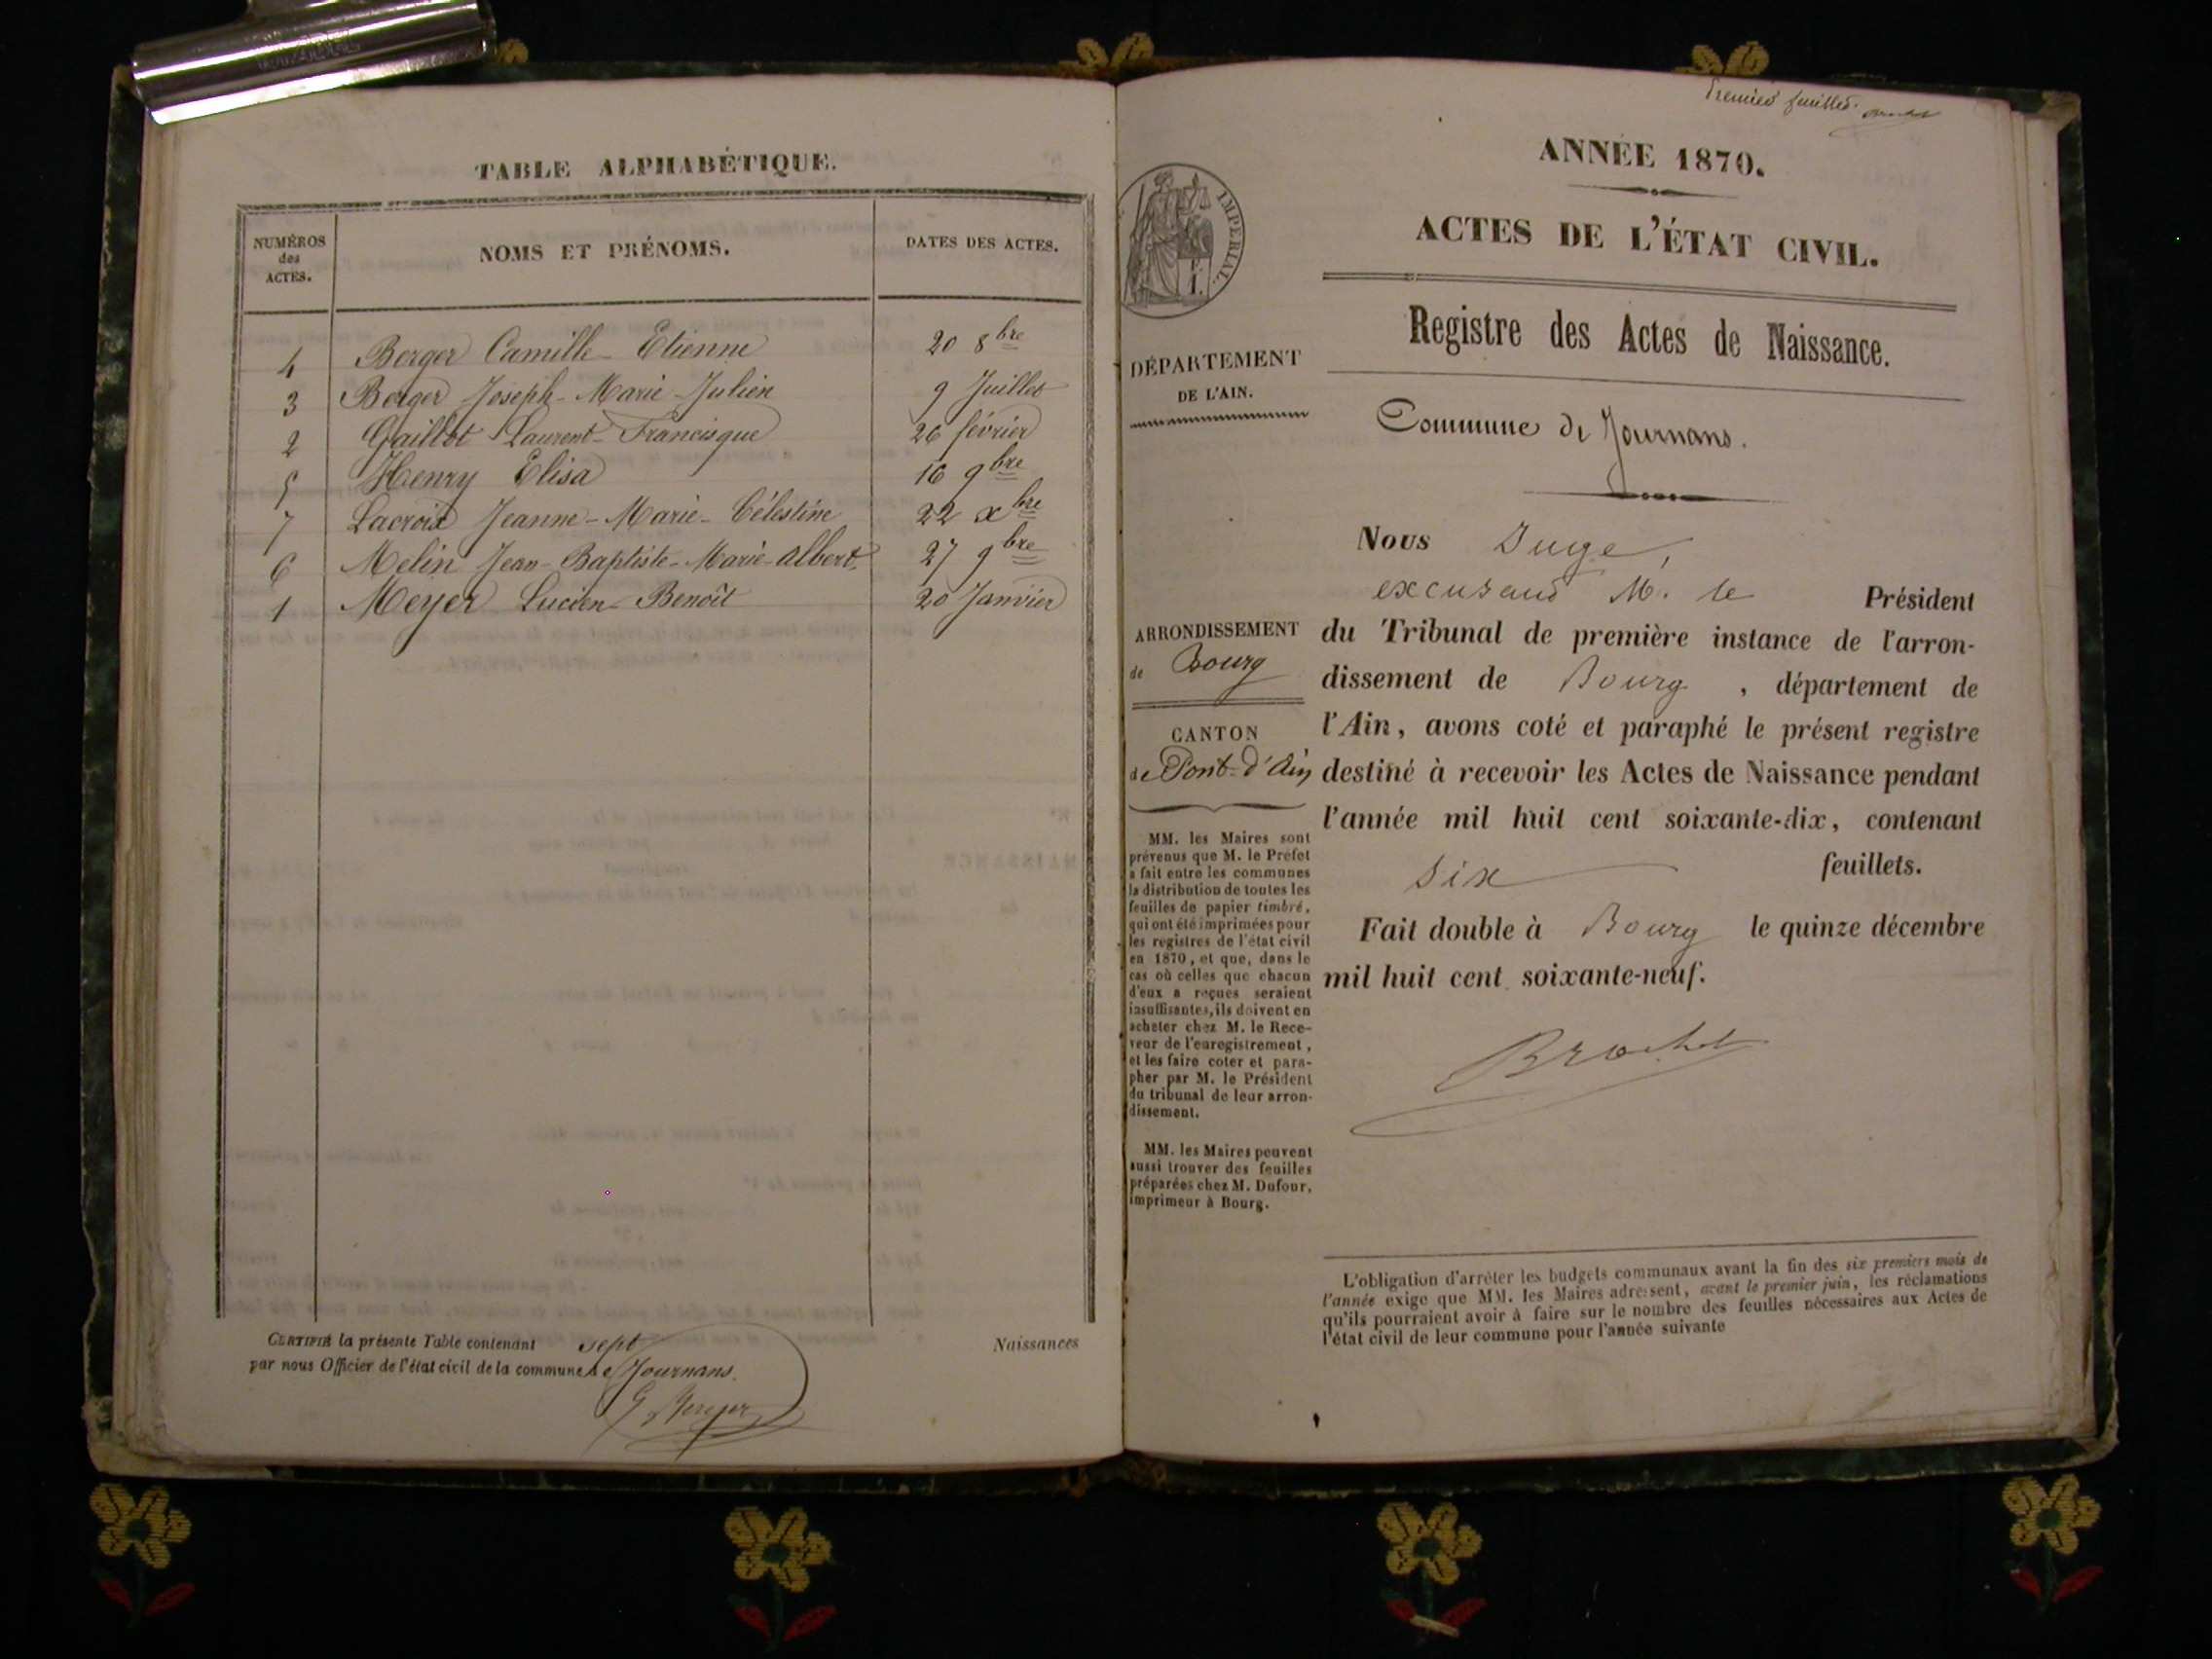 TABLE ALPHABÉTIQUE.
NUMÉROS
des
ACTES.
NOMS ET PRÉNOMS.
DATES DES ACTES.
4 Berger Camille-Etienne 20 8bre
3 Berger Joseph-Marie-Julien 9 Juillet
2 Gaillot Laurent-Francisque 26 février
5 Henry Elisa 16 9bre
7 Lacroix Jeanne-Marie-Célestine 22 xbre
6 Melin Jean-Baptiste-Marie-albert. 27 9bre
1 Meyer Lucien-Benoît 20 Janvier
CERTIFIÉ la présente Table contenant sept Naissances
par nous Officier de l'état civil de la commune de Journans.
Premier feuillet.
ANNÉE 1870.
ACTES DE L'ÉTAT CIVIL.
IMPERIAL.
Registre des Actes de Naissance.
DÉPARTEMENT
DE L'AIN.
Commune de Journans.
ARRONDISSEMENT
de Bourg
CANTON
de Pont-d'Ain
MM. les Maires sont
prévenus que M. le Préfet
a fait entre les communes
la distribution de toutes les
feuilles de papier timbré,
qui ont été imprimées pour
les registres de l'état civil
en 1870, et que, dans le
cas où celles que chacun
d'eux a reçues seraient
insuffisantes, ils doivent en
acheter chez M. le Rece-
veur de l'enregistrement,
et les faire coter et para-
pher par M. le Président
du tribunal de leur arron-
dissement.
MM. les Maires peuvent
aussi trouver des feuilles
préparées chez M. Dufour,
imprimeur à Bourg.
Nous Juge,
excusant M. le Président
du Tribunal de première instance de l'arron-
dissement de Bourg, département de
l'Ain, avons coté et paraphé le présent registre
destiné à recevoir les Actes de Naissance pendant
l'année mil huit cent soixante-dix, contenant
six feuillets.
Fait double à Bourg le quinze décembre
mil huit cent soixante-neuf.
L'obligation d'arrêter les budgets communaux avant la fin des six premiers mois de
l'année exige que MM. les Maires adressent, avant le premier juin, les réclamations
qu'ils pourraient avoir à faire sur le nombre des feuilles nécessaires aux Actes de
l'état civil de leur commune pour l'année suivante